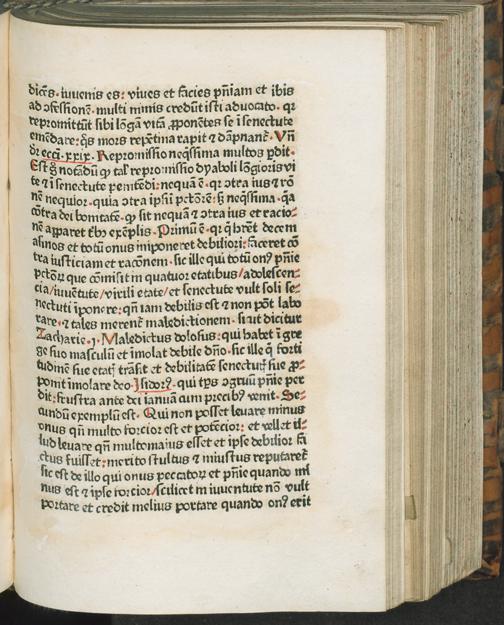 dicēs. iuuenis es: viues et facies pn̄iam et ibis
ad ɔfessionē. multi nimis credūt isti aduocato. qr
repromittūt sibi lōgā vitā ꝓponētes se ī senectute
emēdare: q̄s mors repētina rapit et dāpnanť. Vn̄
dr ecci. xxix. Repromissio neq̄ssima multos ꝑdit.
Est g̊ notādū ꝙ tal repromissio dyaboli lōgioris vi
te et ī senectute penitēdi: nequā ē. qr ɔtra ius et rō
nē nequior. quia ɔtra ip̄m pctōrē: sꝫ neq̄ssima. q̄a
cōtra dei bonitatē. ꝙ sit nequā et ɔtra ius et racio⸗
nē apparet exēplis. Primū ē. qr q̇ hr̄et decem
asinos et totū onus imponeret debiliori: faceret cō
tra iusticiam et racionem. sic ille qui totū onꝰ pn̄ie
pctōꝝ que cōmisit in quatuor etatibus/adolescen⸗
cia/iuuētute/virili etate/et senectute vult soli se⸗
nectuti īponere: qn̄ iam debilis est et non pōt labo
rare. et tales merenť maledictionem. si ut dicitur
Zacharie. j. Maledictus dolosus: qui habet ī gre
ge suo masculū et īmolat debile dn̄o. sic ille q̇ forti
tudinē sue etatꝭ trāsit et debilitatē senectutꝭ sue ꝓ⸗
ponit īmolare deo. Isidorꝰ. qui tp̄s ɔgruū pn̄ie per
dit: frustra ante dei ianuā cum precibꝰ venit. Se⸗
cundū exemplū est. Qui non posset leuare minus
onus qn̄ multo forcior est et potēcior: et vellet il⸗
lud leuare qn̄ multo maius esset et ipse debilior fa
ctus fuisset: merito stultus et iniustus reputareť
sic est de illo qui onus peccatoꝝ et pn̄ie quando mi
nus est et ipse forcior/scilicet in iuuentute nō vult
portare et credit melius portare quando onꝰ erit